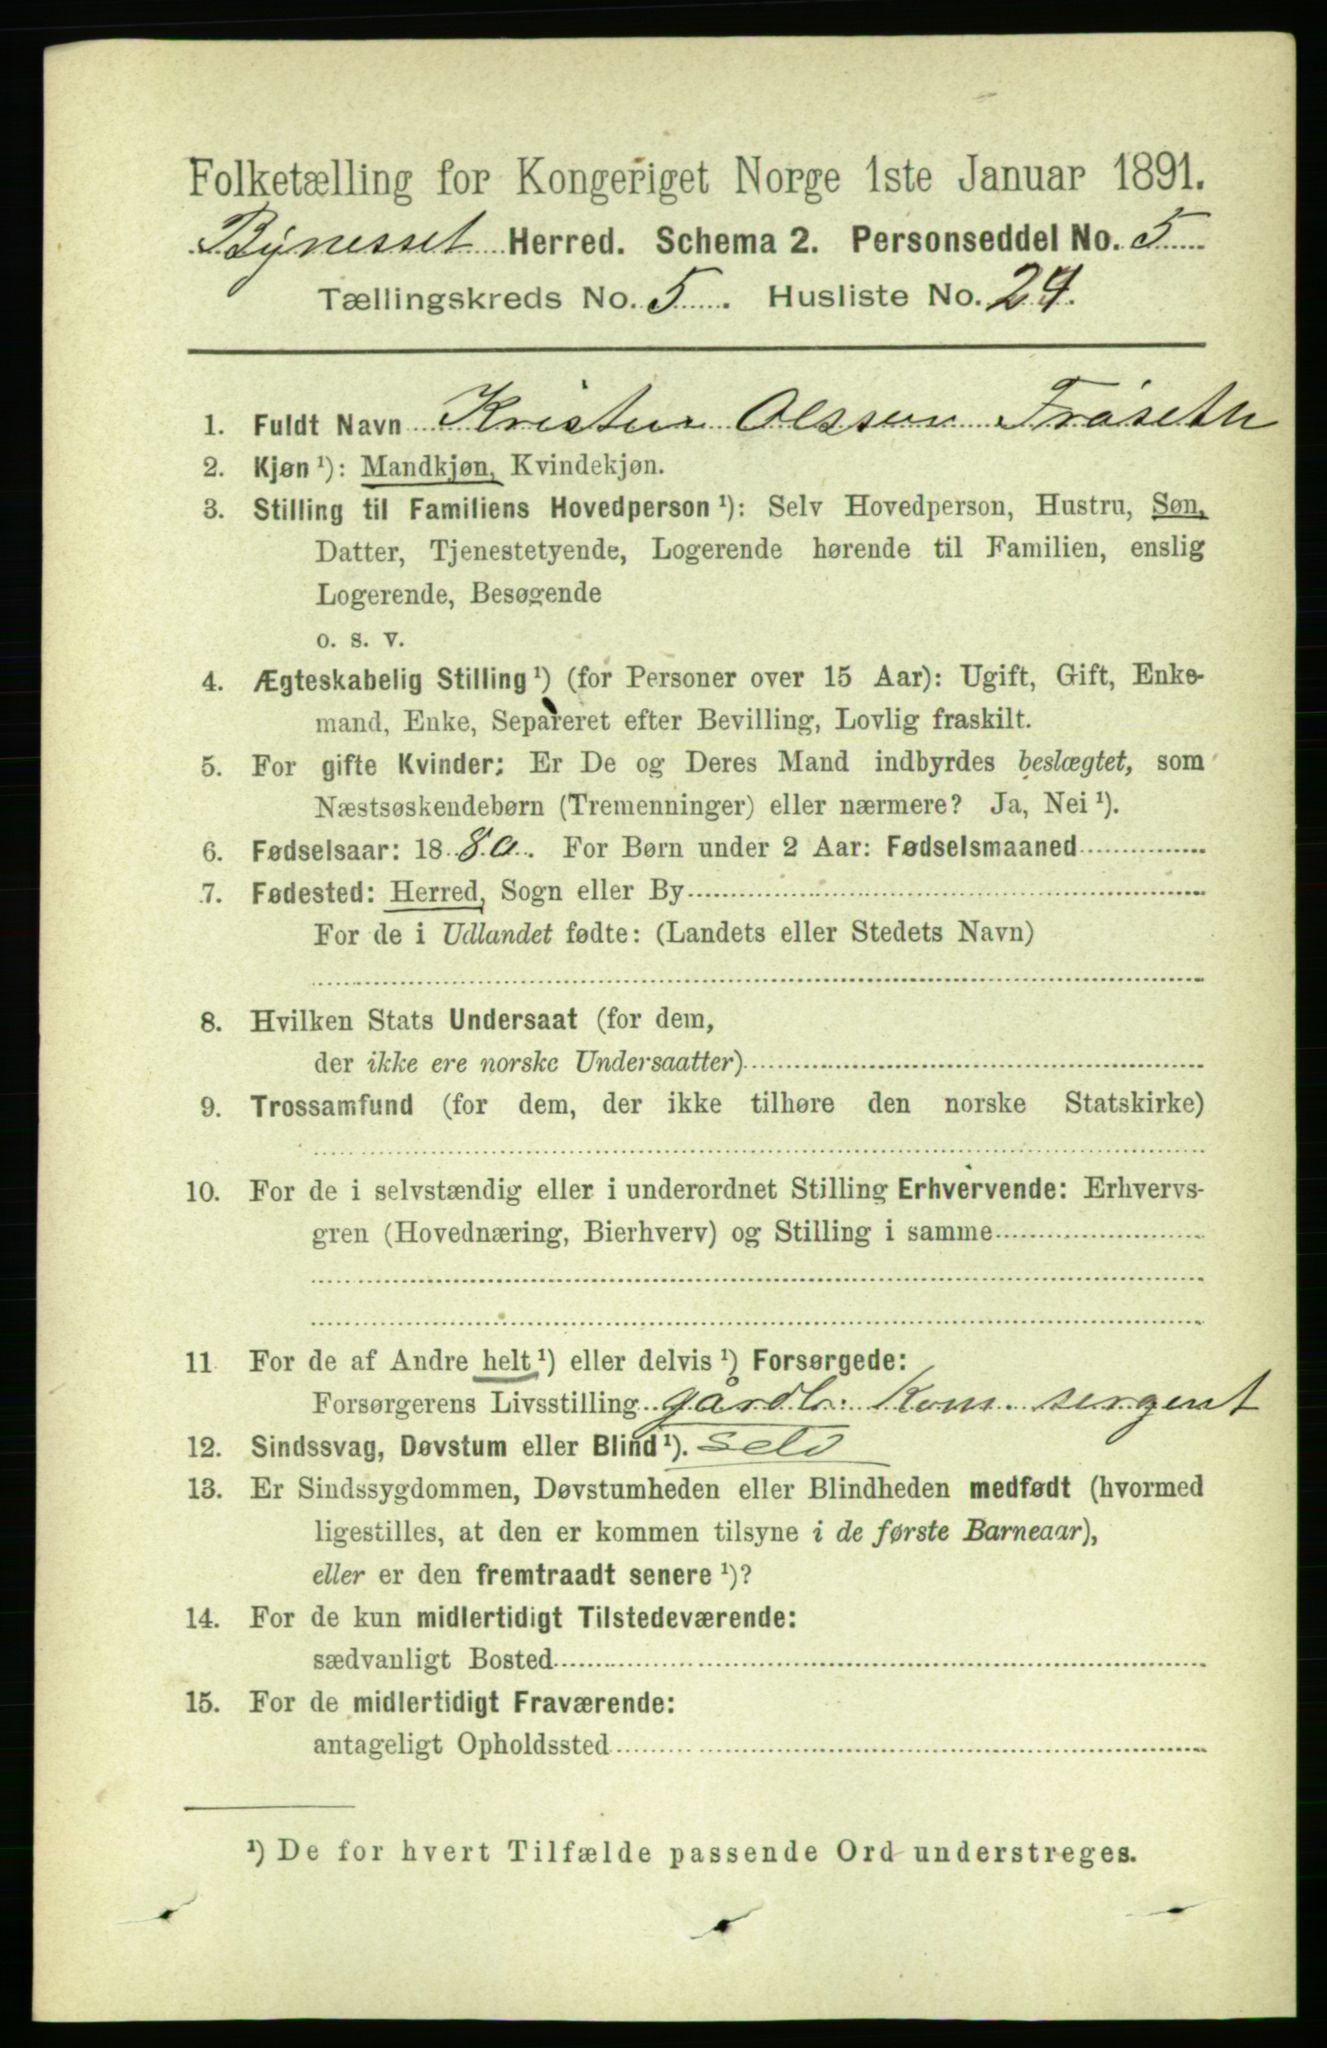 Folketælling for Kongeriget Norge 1ste Januar 1891.
Bynesset Herred. Schema 2. Personseddel No. 5
Tællingskreds No. 5. Husliste No. 24.
1. Fuldt Navn Olssen Fröseth
2. Kjøn ¹): Mandkjøn, Kvindekjøn.
3. Stilling til Familiens Hovedperson ¹): Selv Hovedperson, Hustru, Søn,
Datter, Tjenestetyende, Logerende hørende til Familien, enslig
Logerende, Besøgende
o. s. v.
4. Ægteskabelig Stilling ¹) (for Personer over 15 Aar): Ugift, Gift, Enke-
mand, Enke, Separeret efter Bevilling, Lovlig fraskilt.
5. For gifte Kvinder: Er De og Deres Mand indbyrdes beslægtet, som
Næstsøskendebørn (Tremenninger) eller nærmere? Ja, Nei ¹).
6. Fødselsaar: 1880. For Børn under 2 Aar: Fødselsmaaned
7. Fødested: Herred, Sogn eller By
For de i Udlandet fødte: (Landets eller Stedets Navn)
8. Hvilken Stats Undersaat (for dem,
der ikke ere norske Undersaatter)
9. Trossamfund (for dem, der ikke tilhøre den norske Statskirke)
10. For de i selvstændig eller i underordnet Stilling Erhvervende: Erhvervs-
gren (Hovednæring, Bierhverv) og Stilling i samme
11 For de af Andre helt ¹) eller delvis ¹) Forsørgede:
Forsørgerens Livsstilling gårdb. Kom. sergent
12. Sindssvag, Døvstum eller Blind ¹).
13. Er Sindssygdommen, Døvstumheden eller Blindheden medfødt (hvormed
ligestilles, at den er kommen tilsyne i de første Barneaar),
eller er den fremtraadt senere ¹)?
14. For de kun midlertidigt Tilstedeværende:
sædvanligt Bosted
15. For de midlertidigt Fraværende:
antageligt Opholdssted
¹) De for hvert Tilfælde passende Ord understreges.